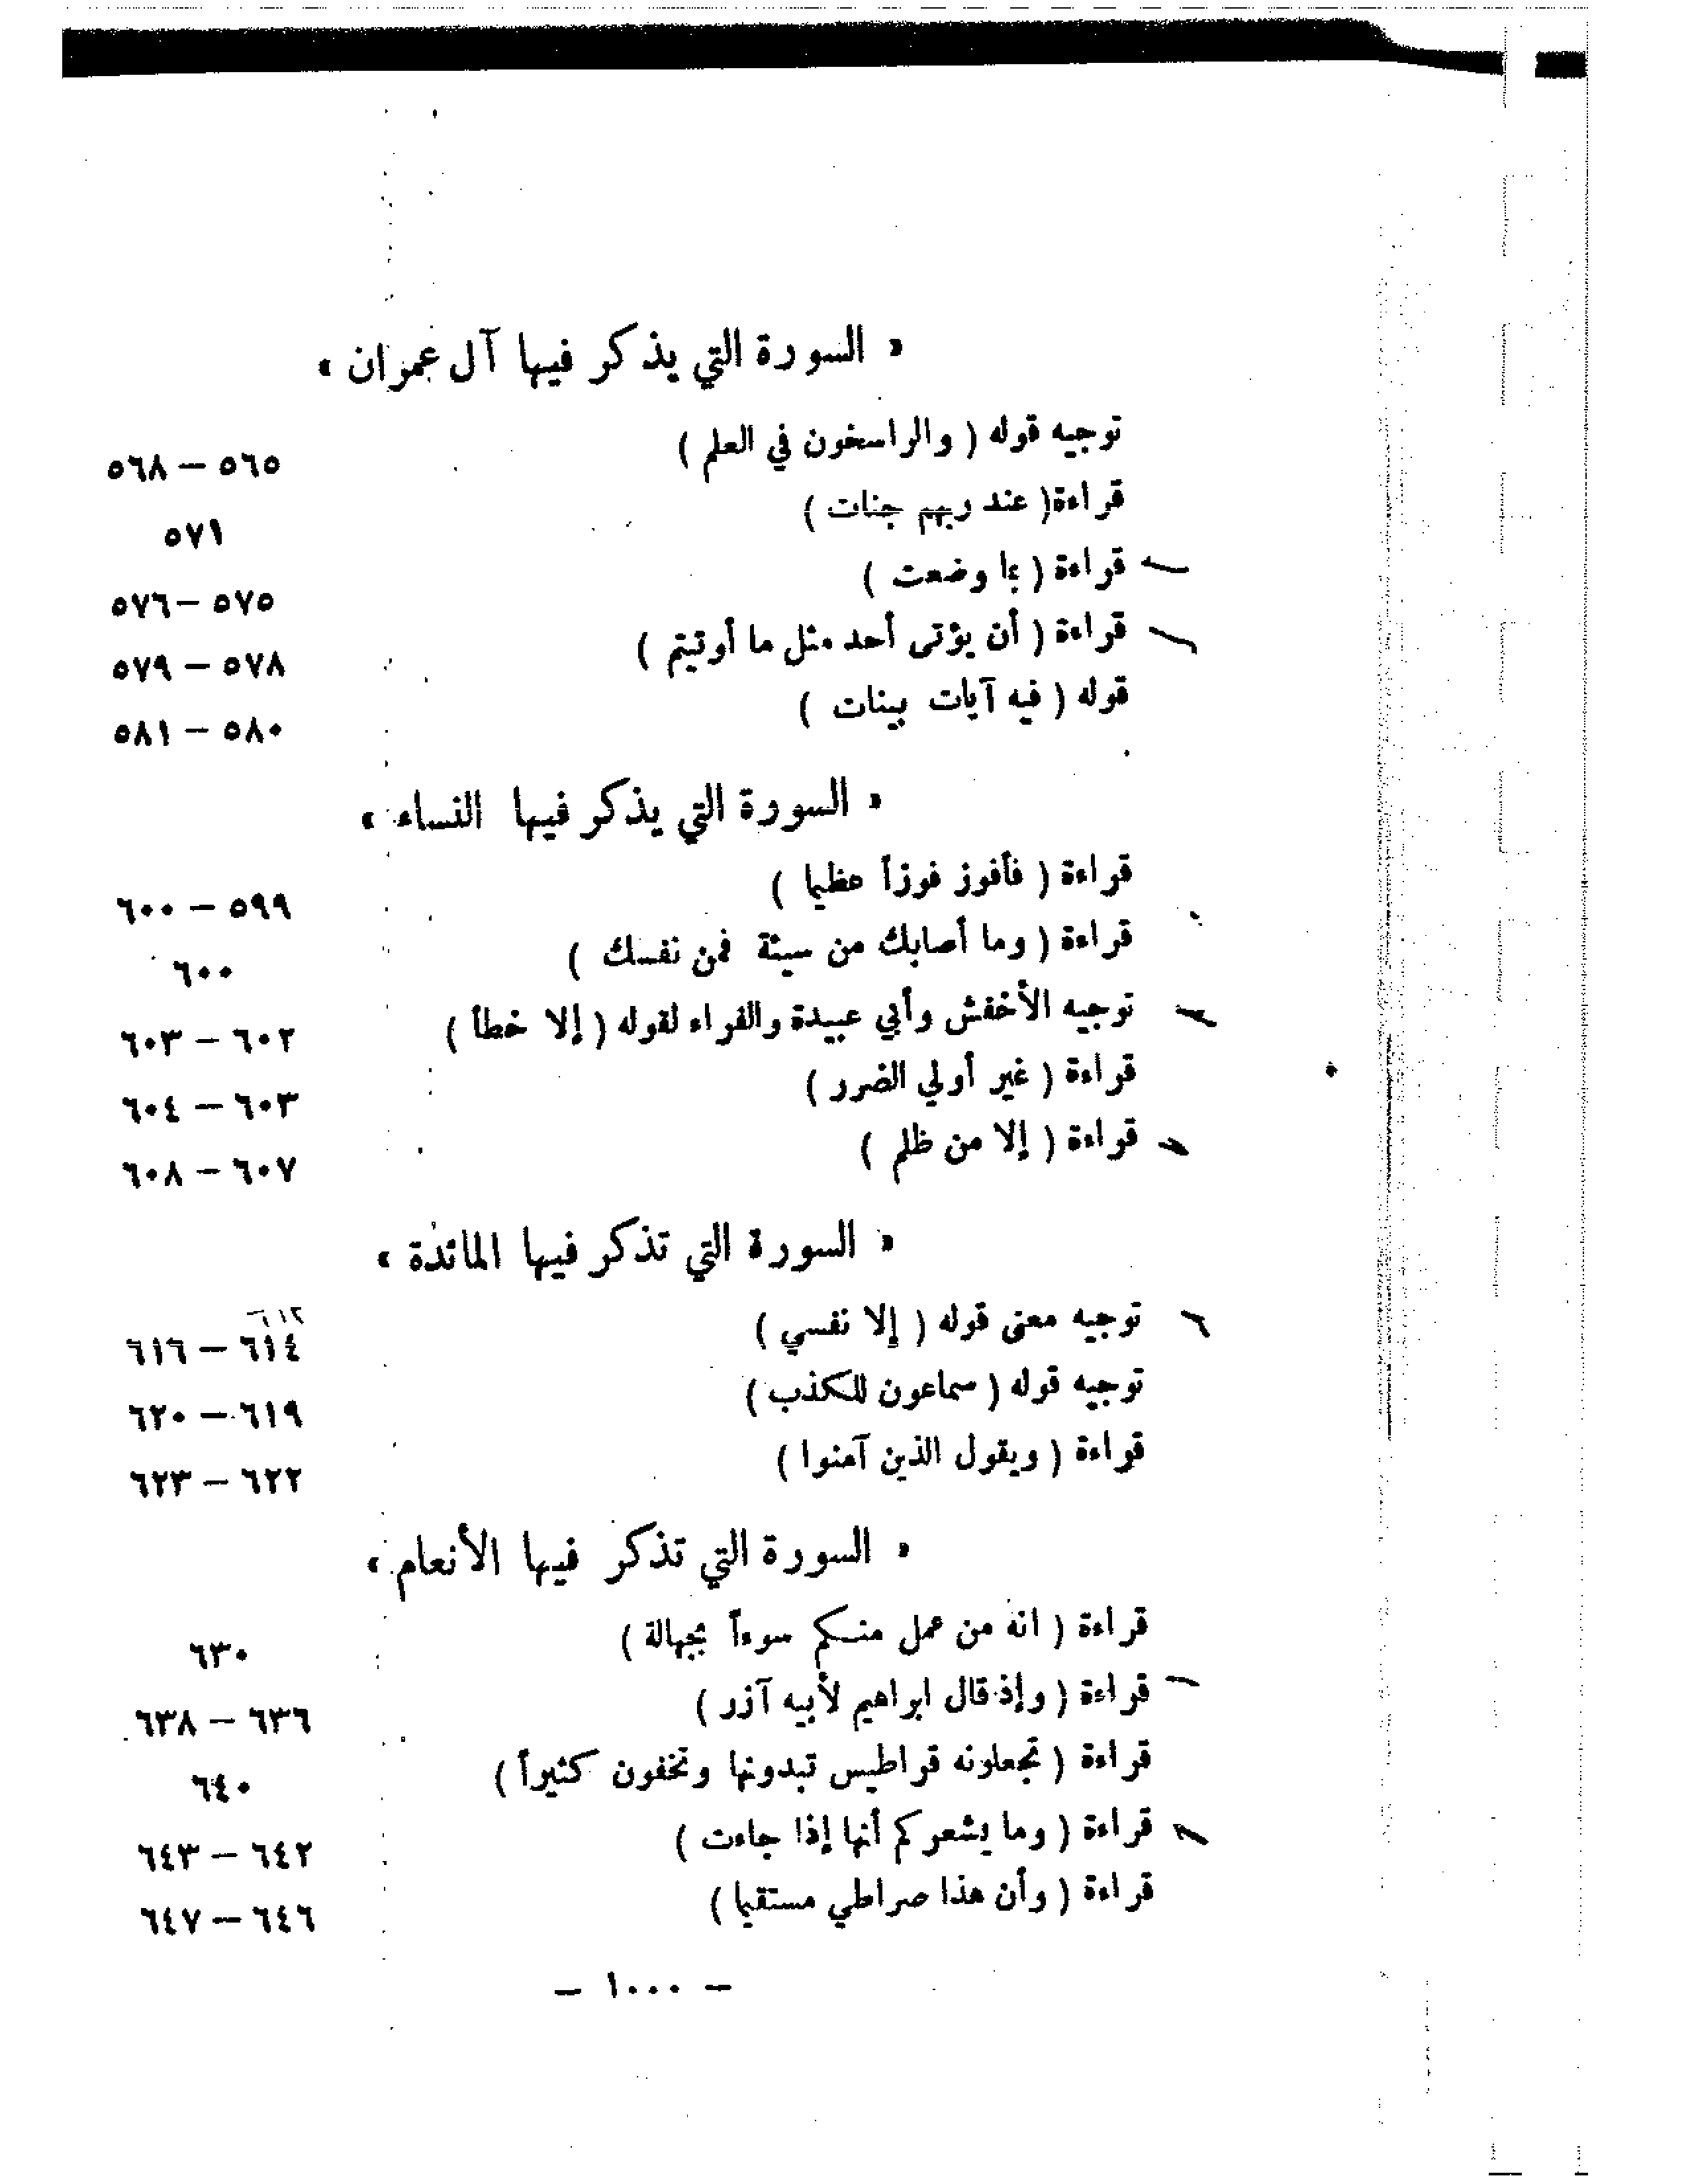 « السورة التي يذكر فيها آل عمران »
توجيه قوله ( والراسخون في العلم ) ٥٦٥ – ٥٦٨
قراءة( عند ربهم جنات ) ٥٧١
قراءة ( بما وضعت ) ٥٧٥ – ٥٧٦
قراءة ( أن يؤتى أحد مثل ما أوتيتم ) ٥٧٨ – ٥٧٩
قوله ( فيه آيات بينات ) ٥٨٠ – ٥٨١
« السورة التي يذكر فيها النساء »
قراءة ( فأفوز فوزاً عظيما ) ٥٩٩ – ٦٠٠
قراءة ( وما أصابك من سيئة فمن نفسك ) ٦٠٠
توجيه الأخفش وأبي عبيدة والفراء لقوله ( إلا خطأ ) ٦٠٢ – ٦٠٣
قراءة ( غير أولي الضرر ) ٦٠٣ – ٦٠٤
قراءة ( إلا من ظلم ) ٦٠٧ – ٦٠٨
« السورة التي تذكر فيها المائدة »
٦١٢
توجيه معنى قوله ( إلا نفسي ) ٦١٤ – ٦١٦
توجيه قوله ( سماعون للكذب ) ٦١٩ – ٦٢٠
قراءة ( ويقول الذين آمنوا ) ٦٢٢ – ٦٢٣
« السورة التي تذكر فيها الأنعام »
قراءة ( انه من عمل منكم سوءاً بجهالة ) ٦٣٠
قراءة ( وإذ قال ابراهيم لأبيه آزر ) ٦٣٦ – ٦٣٨
قراءة ( تجعلونه قراطيس تبدونها وتخفون كثيراً ) ٦٤٠
قراءة ( وما يشعركم أنها إذا جاءت ) ٦٤٢ – ٦٤٣
قراءة ( وأن هذا صراطي مستقيما ) ٦٤٦ – ٦٤٧
– ١٠٠٠ –